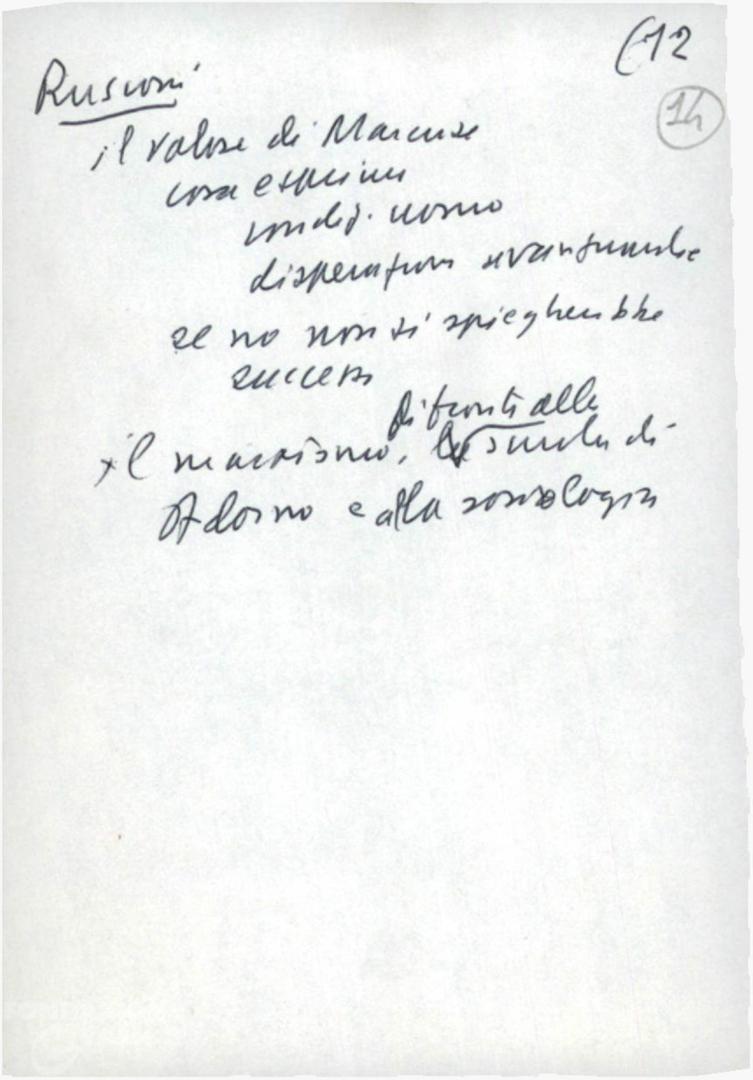 (12
14
Rusconi
il valore di Marcuse
cosa esprime
condiz. uomo
disperazione
se no non si spiegherebbe
successo
di fronte alla
il marxismo, la scuola di
Adorno e alla sociologia